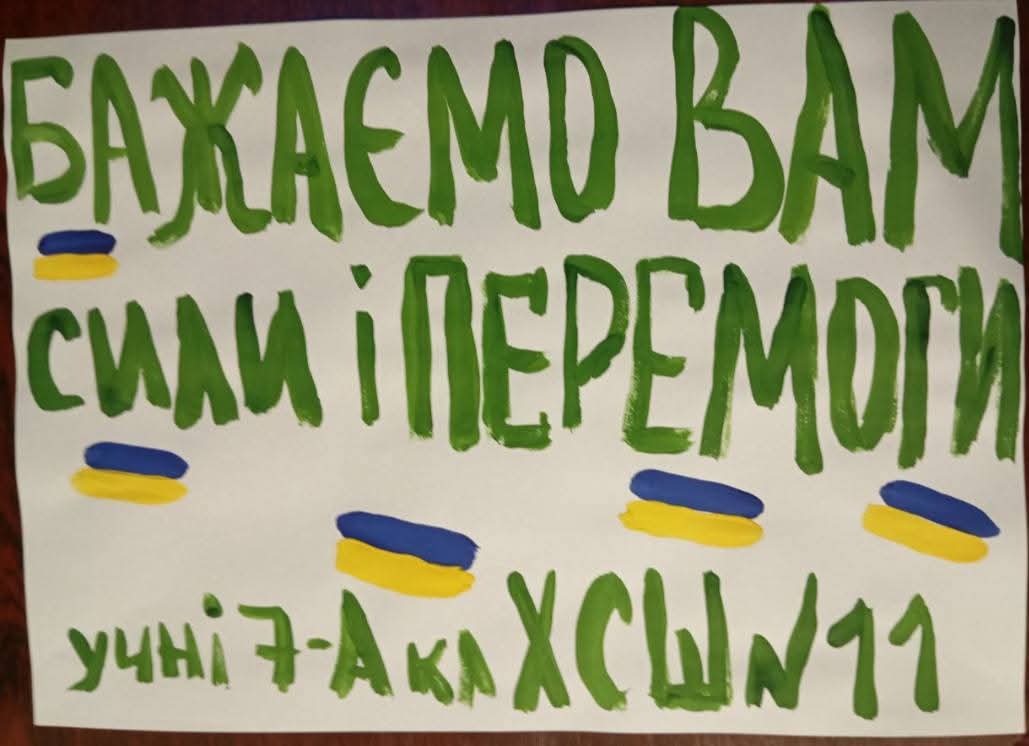 БАЖАЄМО ВАМ
СИЛИ і ПЕРЕМОГИ
учні 7-А кл ХСШ N11